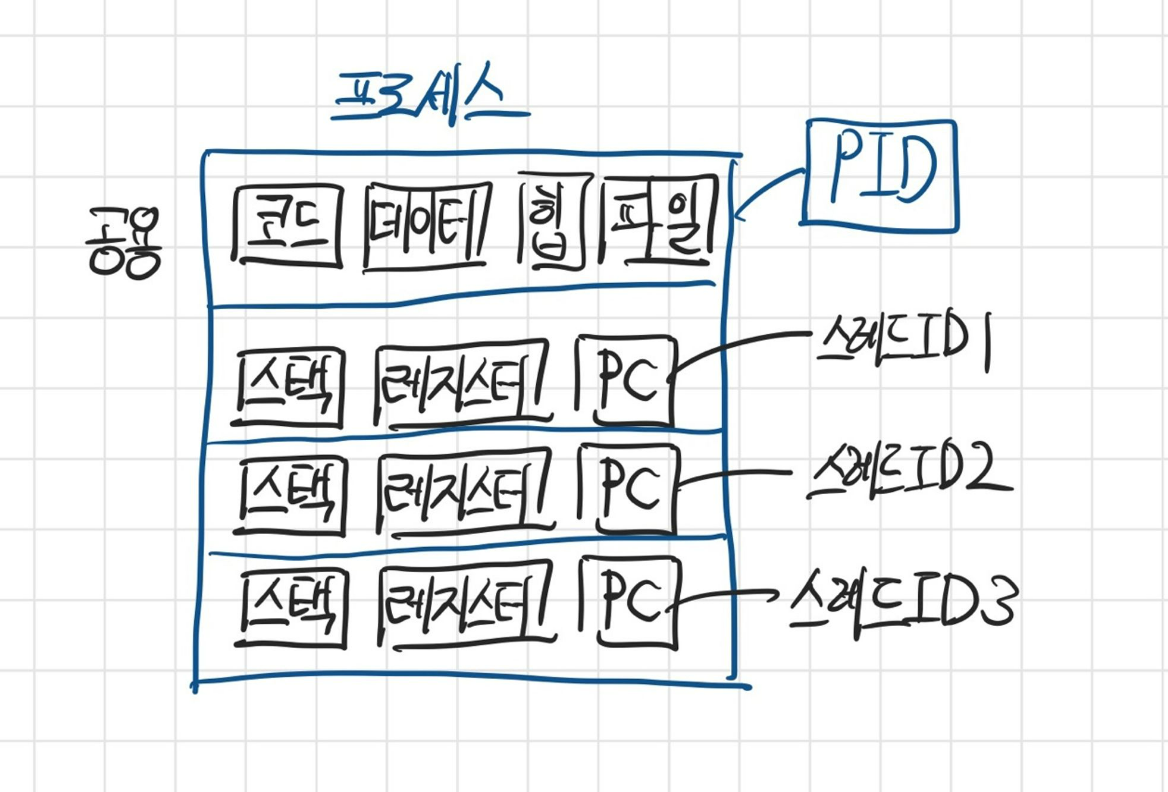 프로세스
PID
공용
코드 데이터 힙 파일
스택 레지스터 PC 스레드ID1
스택 레지스터 PC 스레드ID2
스택 레지스터 PC 스레드ID3